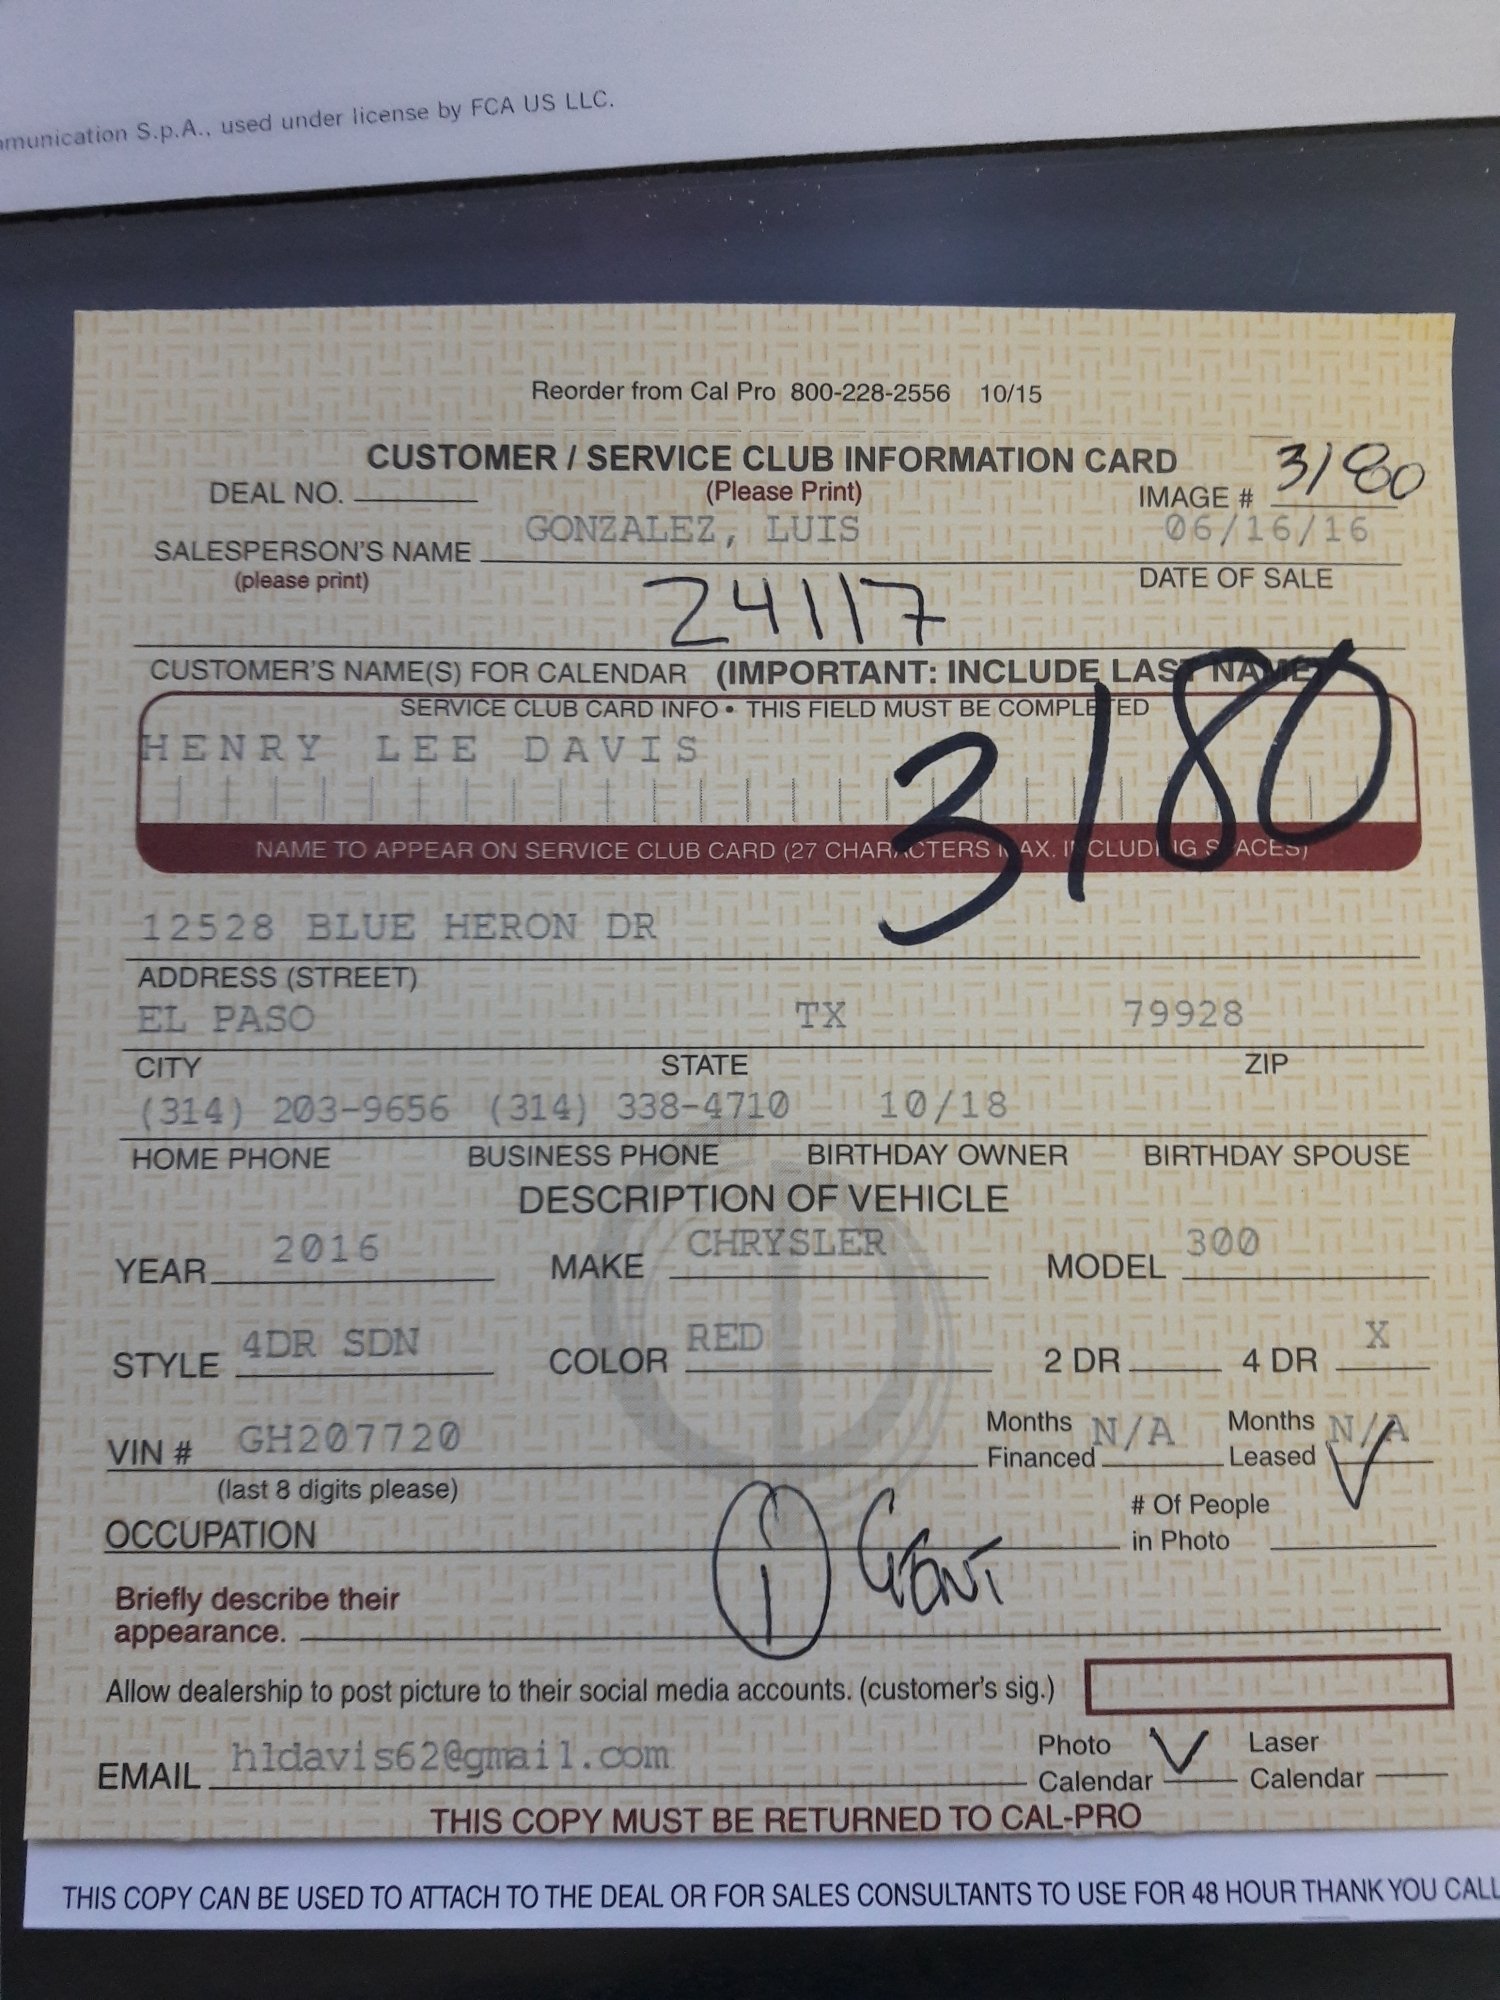 mmunication S.p.A., used under license by FCA US LLC.
Reorder from Cal Pro 800-228-2556 10/15
CUSTOMER / SERVICE CLUB INFORMATION CARD
DEAL NO. (Please Print) IMAGE # 3180
SALESPERSON'S NAME GONZALEZ, LUIS 06/16/16
(please print) DATE OF SALE
24117
CUSTOMER'S NAME(S) FOR CALENDAR (IMPORTANT: INCLUDE LAST NAME)
SERVICE CLUB CARD INFO • THIS FIELD MUST BE COMPLETED
HENRY LEE DAVIS
3180
NAME TO APPEAR ON SERVICE CLUB CARD (27 CHARACTERS MAX. INCLUDING SPACES)
12528 BLUE HERON DR
ADDRESS (STREET)
EL PASO TX 79928
CITY STATE ZIP
(314) 203-9656 (314) 338-4710 10/18
HOME PHONE BUSINESS PHONE BIRTHDAY OWNER BIRTHDAY SPOUSE
DESCRIPTION OF VEHICLE
YEAR 2016 MAKE CHRYSLER MODEL 300
STYLE 4DR SDN COLOR RED 2 DR 4 DR X
VIN # GH207720 Months Financed N/A Months Leased N/A
(last 8 digits please)
OCCUPATION # Of People in Photo
1
Briefly describe their
appearance.
Allow dealership to post picture to their social media accounts. (customer's sig.)
EMAIL hldavis62@gmail.com Photo Calendar Laser Calendar
THIS COPY MUST BE RETURNED TO CAL-PRO
THIS COPY CAN BE USED TO ATTACH TO THE DEAL OR FOR SALES CONSULTANTS TO USE FOR 48 HOUR THANK YOU CALL